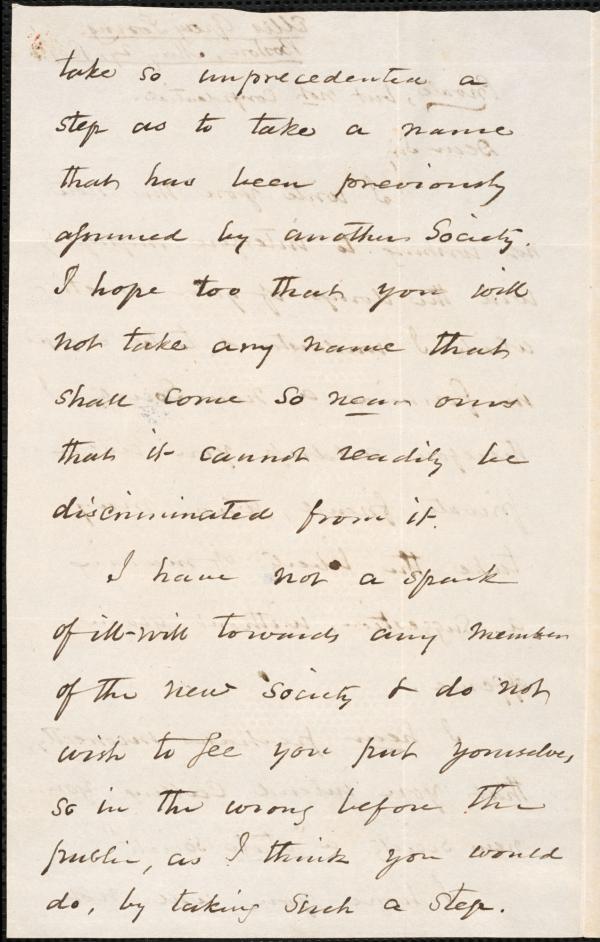 take so unprecedented a
step as to take a name
that has been previously
assumed by another Society.
I hope too that you will
not take any name that
shall come so near ours
that it cannot readily be
discriminated from it.
I have not a spark
of ill-will towards any member
of the new Society & do not
wish to see you put yourselves
so in the wrong before the
public, as I think you would
do, by taking such a step.